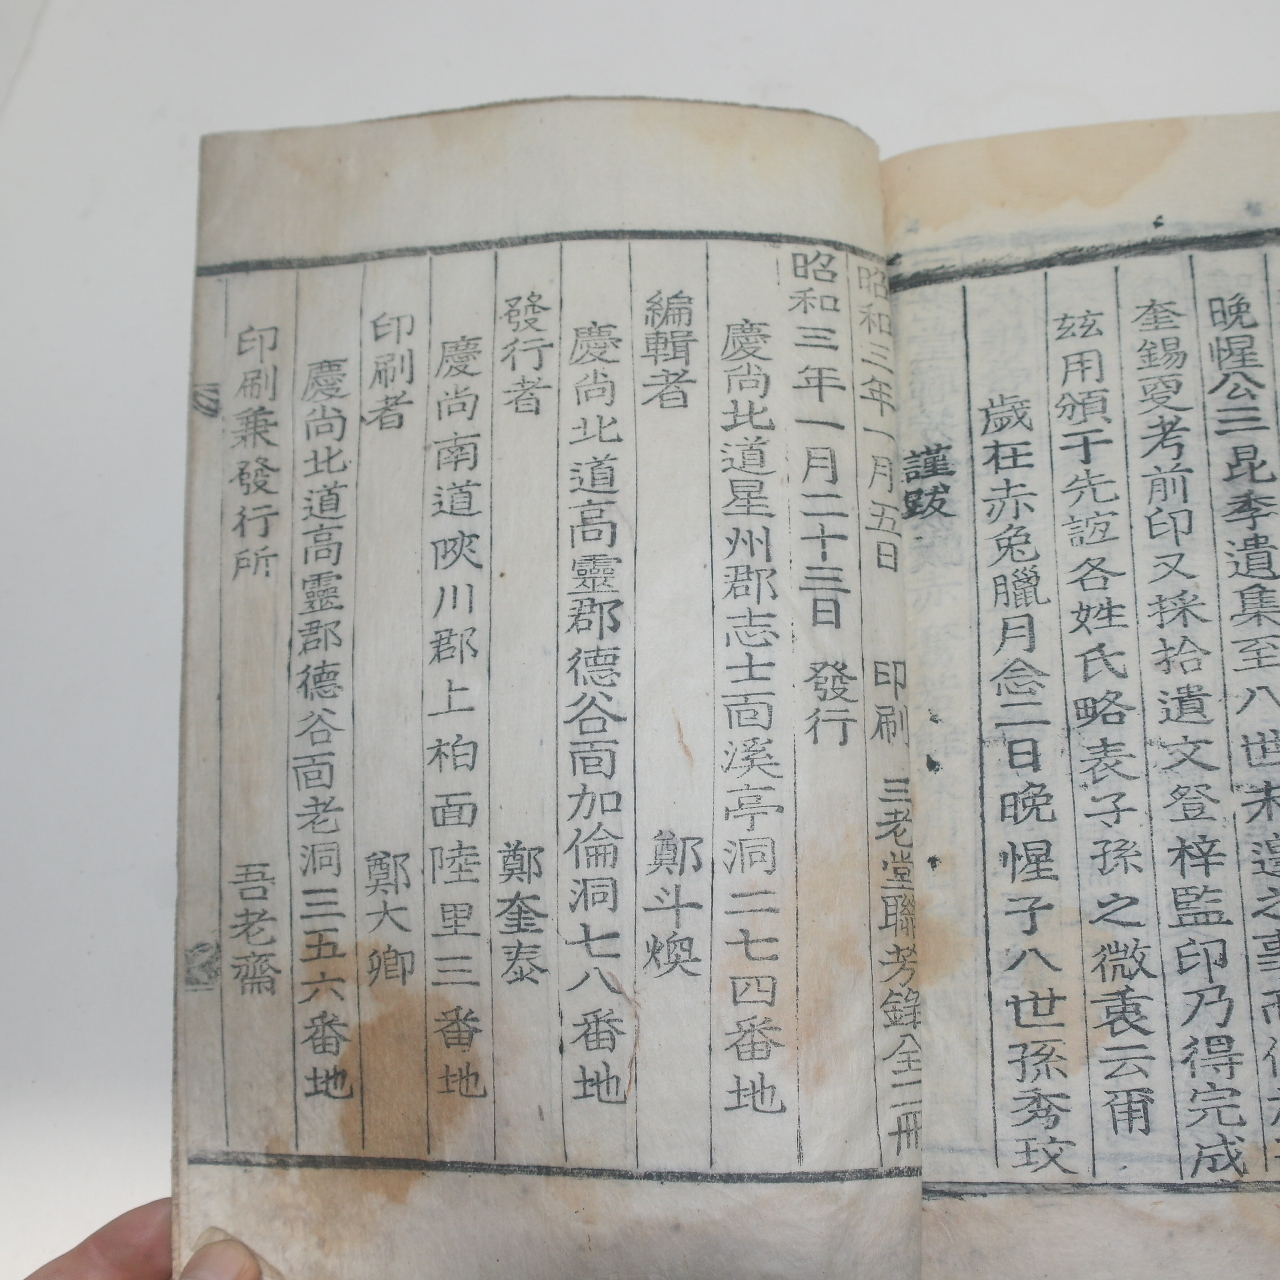 晩惺公三昆季遺集至八世未遑之事而
奎錫夏考前印又採拾遺文登梓監印乃得完成
玆用頒于先誼各姓氏略表子孫之微衷云爾
歲在赤兔臘月念二日晩惺子八世孫秀玟
謹跋
昭和三年一月五日 印刷 三老堂聯芳錄全二冊
昭和三年一月二十三日 發行
慶尚北道星州郡志士面溪亭洞二七四番地
編輯者 鄭斗煥
慶尚北道高靈郡德谷面加倫洞七八番地
發行者 鄭奎泰
慶尚南道陜川郡上柏面陸里三番地
印刷者 鄭大卿
慶尚北道高靈郡德谷面老洞三五六番地
印刷兼發行所 吾老齋